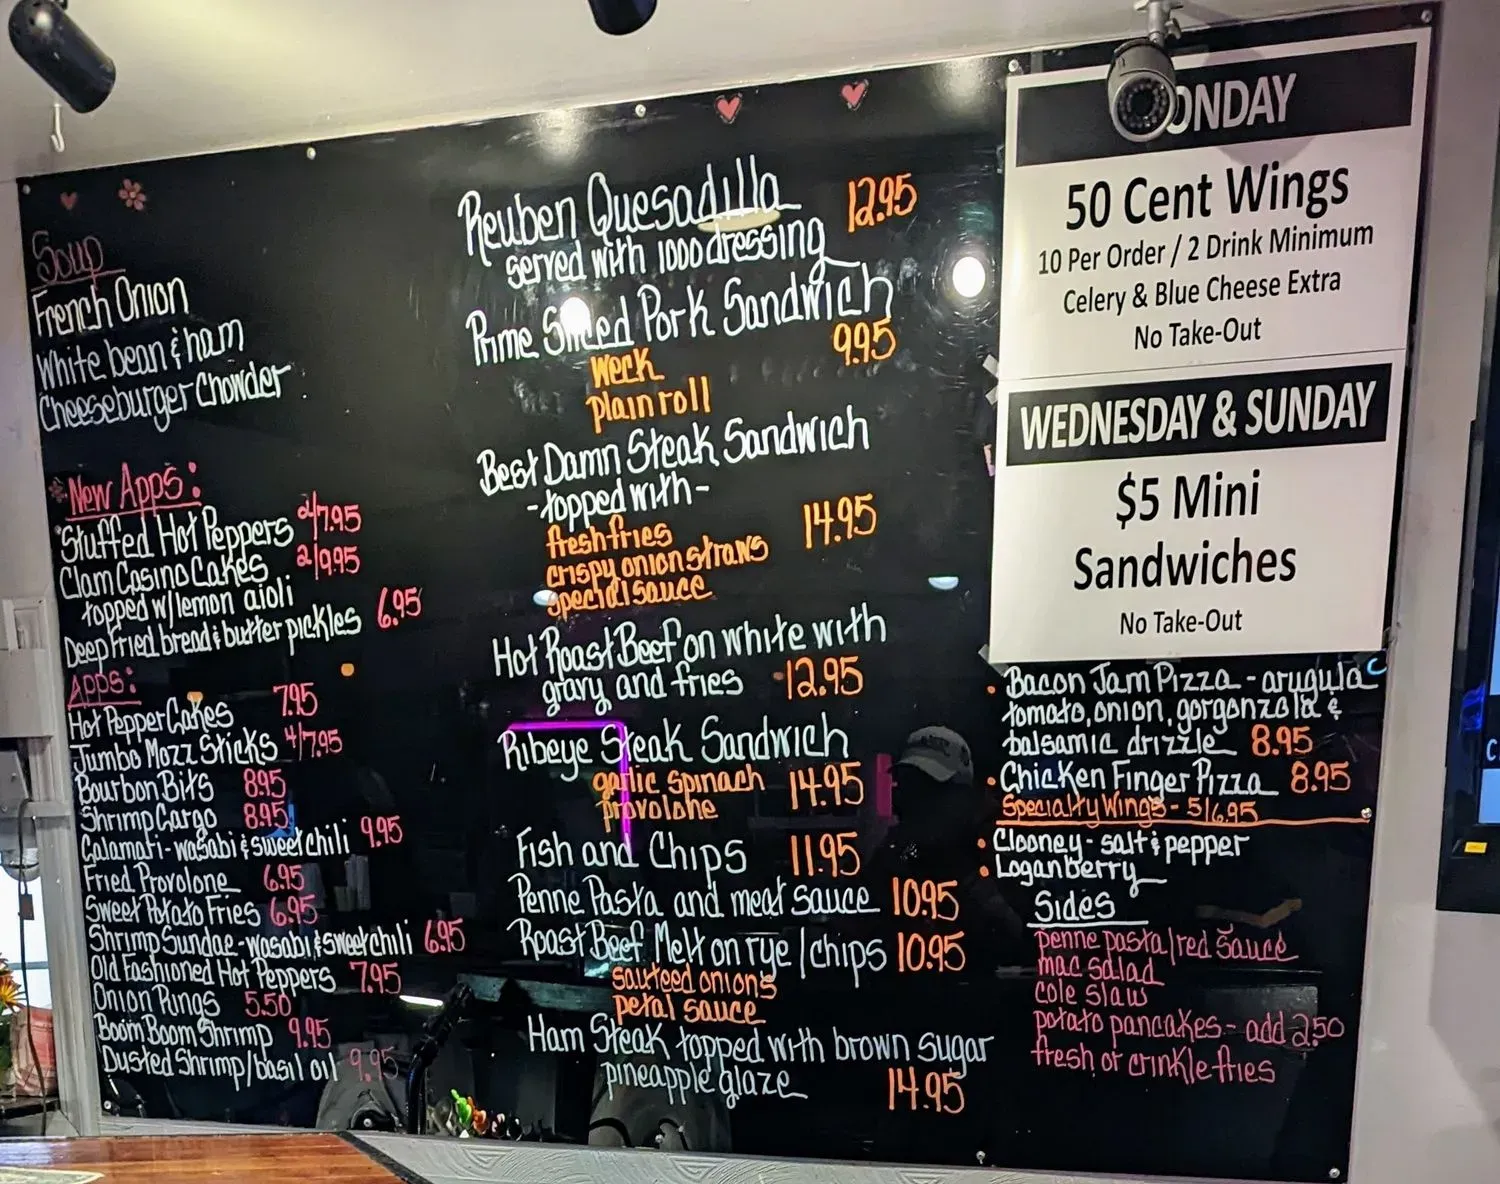 Soup
French Onion
White bean & ham
Cheeseburger Chowder
*New Apps:
*Stuffed Hot Peppers 2/7.95
Clam Casino Cakes 2/9.95
topped w/lemon aioli
Deep Fried bread & butter pickles 6.95
Apps:
Hot Pepper Cakes 7.95
Jumbo Mozz Sticks 4/7.95
Bourbon Bits 8.95
Shrimp Cargo 8.95
Calamari - wasabi & sweet chili 9.95
Fried Provolone 6.95
Sweet Potato Fries 6.95
Shrimp Sundae - wasabi & sweet chili 6.95
Old Fashioned Hot Peppers 7.95
Onion Rings 5.50
Boom Boom Shrimp 9.95
Dusted Shrimp/basil oil 9.95
Reuben Quesadilla 12.95
served with 1000 dressing
Prime Sliced Pork Sandwich
weck 9.95
plain roll
Best Damn Steak Sandwich
- topped with -
fresh fries 14.95
crispy onion straws
special sauce
Hot Roast Beef on white with
gravy and fries 12.95
Ribeye Steak Sandwich
garlic spinach 14.95
provolone
Fish and Chips 11.95
Penne Pasta and meat sauce 10.95
Roast Beef Melt on rye / chips 10.95
sauteed onions
petal sauce
Ham Steak topped with brown sugar
pineapple glaze 14.95
ONDAY
50 Cent Wings
10 Per Order / 2 Drink Minimum
Celery & Blue Cheese Extra
No Take-Out
WEDNESDAY & SUNDAY
$5 Mini
Sandwiches
No Take-Out
Bacon Jam Pizza - arugula
tomato, onion, gorgonzola &
balsamic drizzle 8.95
Chicken Finger Pizza 8.95
Specialty Wings - 5/6.95
Clooney - salt & pepper
Loganberry
Sides
penne pasta/red sauce
mac salad
cole slaw
potato pancakes - add 2.50
fresh or crinkle fries